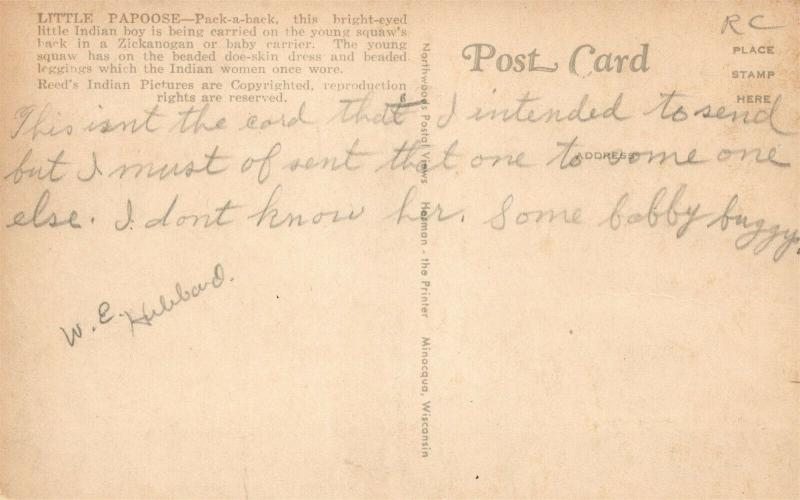 LITTLE PAPOOSE—Pack-a-back, this bright-eyed
little Indian boy is being carried on the young squaw's
back in a Zickanogan or baby carrier. The young
squaw has on the beaded doe-skin dress and beaded
leggings which the Indian women once wore.
Reed's Indian Pictures are Copyrighted, reproduction
rights are reserved.
Post Card
RC
PLACE
STAMP
HERE
ADDRESS
This isnt the card that I intended to send
but I must of sent that one to some one
else. I dont know her. Some babby buggy.
W. E. Hubbard.
Northwoods Postal Views Harman - the Printer Minocqua, Wisconsin